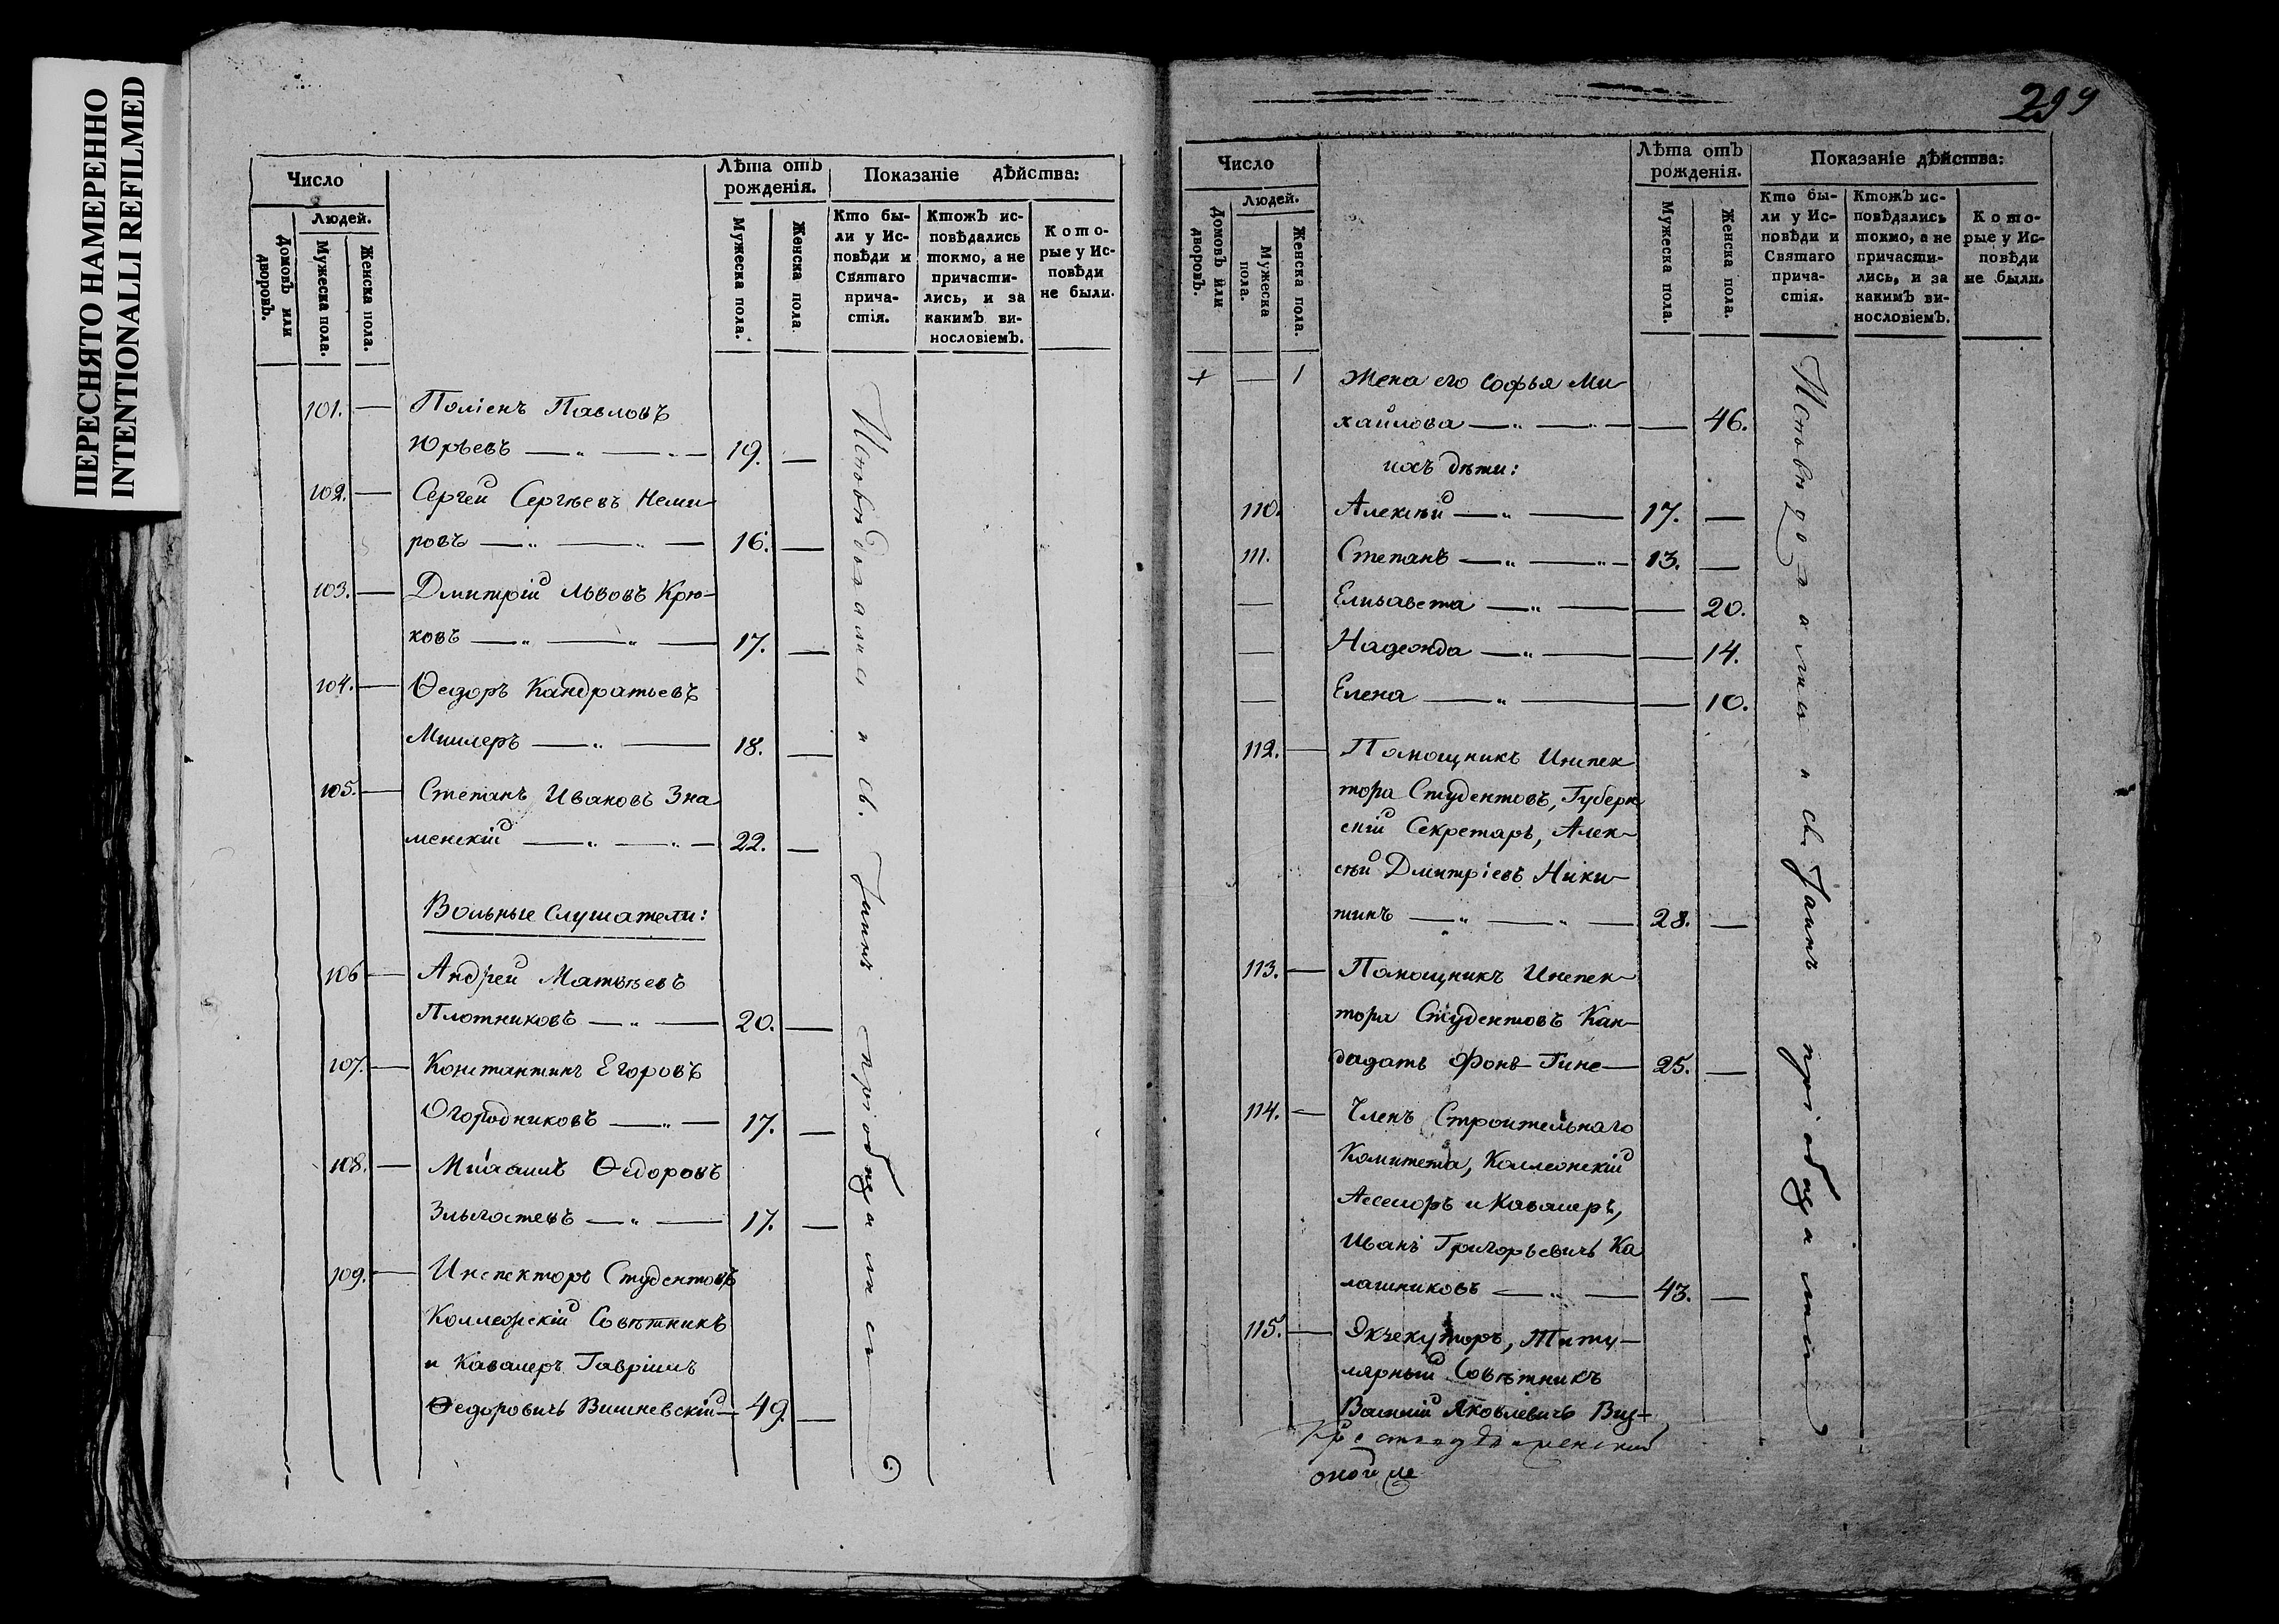 ПЕРЕСНЯТО НАМЕРЕННО
INTENTIONALLI REFILMED
Число
Людей.
Домовъ или дворовъ.
Мужеска пола.
Женска пола.
Лѣта отъ рожденія.
Мужеска пола.
Женска пола
Показаніе дѣйства:
Кто бы-
ли у Ис-
повѣди и
Святаго
прича-
стія.
Ктожъ ис-
повѣдались
токмо, а не
причасти-
лись, и за
какимъ ви-
нословіемъ.
Кото-
рые у Ис-
повѣди
не были.
101. — Полiенъ Павловъ
Юрьевъ — „ — „ — 19. —
102. — Сергей Сергѣевъ Неми-
ровъ — „ — „ — 16. —
103. — Дмитрій Львовъ Крю-
ковъ — „ — „ — 17. —
104. — Ѳедоръ Кандратьевъ
Миллеръ — „ — 18. —
105. — Степанъ Ивановъ Зна
менскій — „ — „ — 22. —
Вольные Слушатели:
106 — Андрей Матвѣевъ
Плотниковъ — „ — 20. —
107. — Константинъ Егоровъ
Огородниковъ — „ — 17. —
108. — Михаилъ Ѳедоровъ
— „ — 17. —
109. — Инспекторъ Студентовъ
Коллежскій Совѣтникъ
и Кавалеръ Гавріилъ
Ѳедоровичь Вишневскій — 49. —
Исповѣдались и св. Таинъ пріобщались
299
Число
Людей.
Домовъ или дворовъ.
Мужеска пола.
Женска пола.
Лѣта отъ рожденія.
Мужеска пола.
Женска пола.
Показаніе дѣйства:
Кто бы-
ли у Ис-
повѣди и
Святаго
прича-
стія.
Ктожъ ис-
повѣдались
токмо, а не
причасти-
лись, и за
какимъ ви-
нословіемъ.
Кото-
рые у Ис-
повѣди
не были.
+ — 1 Жена его Софья Ми-
хайлова — „ — „ — — 46.
ихъ дѣти:
110. Алексѣй — „ — 17. —
111. Степанъ — „ — „ — 13. —
— Елисавета — „ — — 20.
— Надежда — „ — — 14.
— Елена — „ — — 10.
112. — Помощникъ Инспек
тора Студентовъ, Губерн
скій Секретарь, Алек-
сѣй Дмитріевъ Ники-
тинъ — „ — „ — 28. —
113. — Помощникъ Инспек-
тора Студентовъ Кан-
дидатъ Фонъ-Гине — 25. —
114. — Членъ Строительнаго
Комитета, Коллежскій
Асессоръ и Кавалеръ,
Иванъ Григорьевичь Ка
лашниковъ — „ — 43. —
115. — Экзекуторъ, Титу-
лярный Совѣтникъ
Василій Яковлевичь
Исповѣдались и св. Таинъ пріобщались